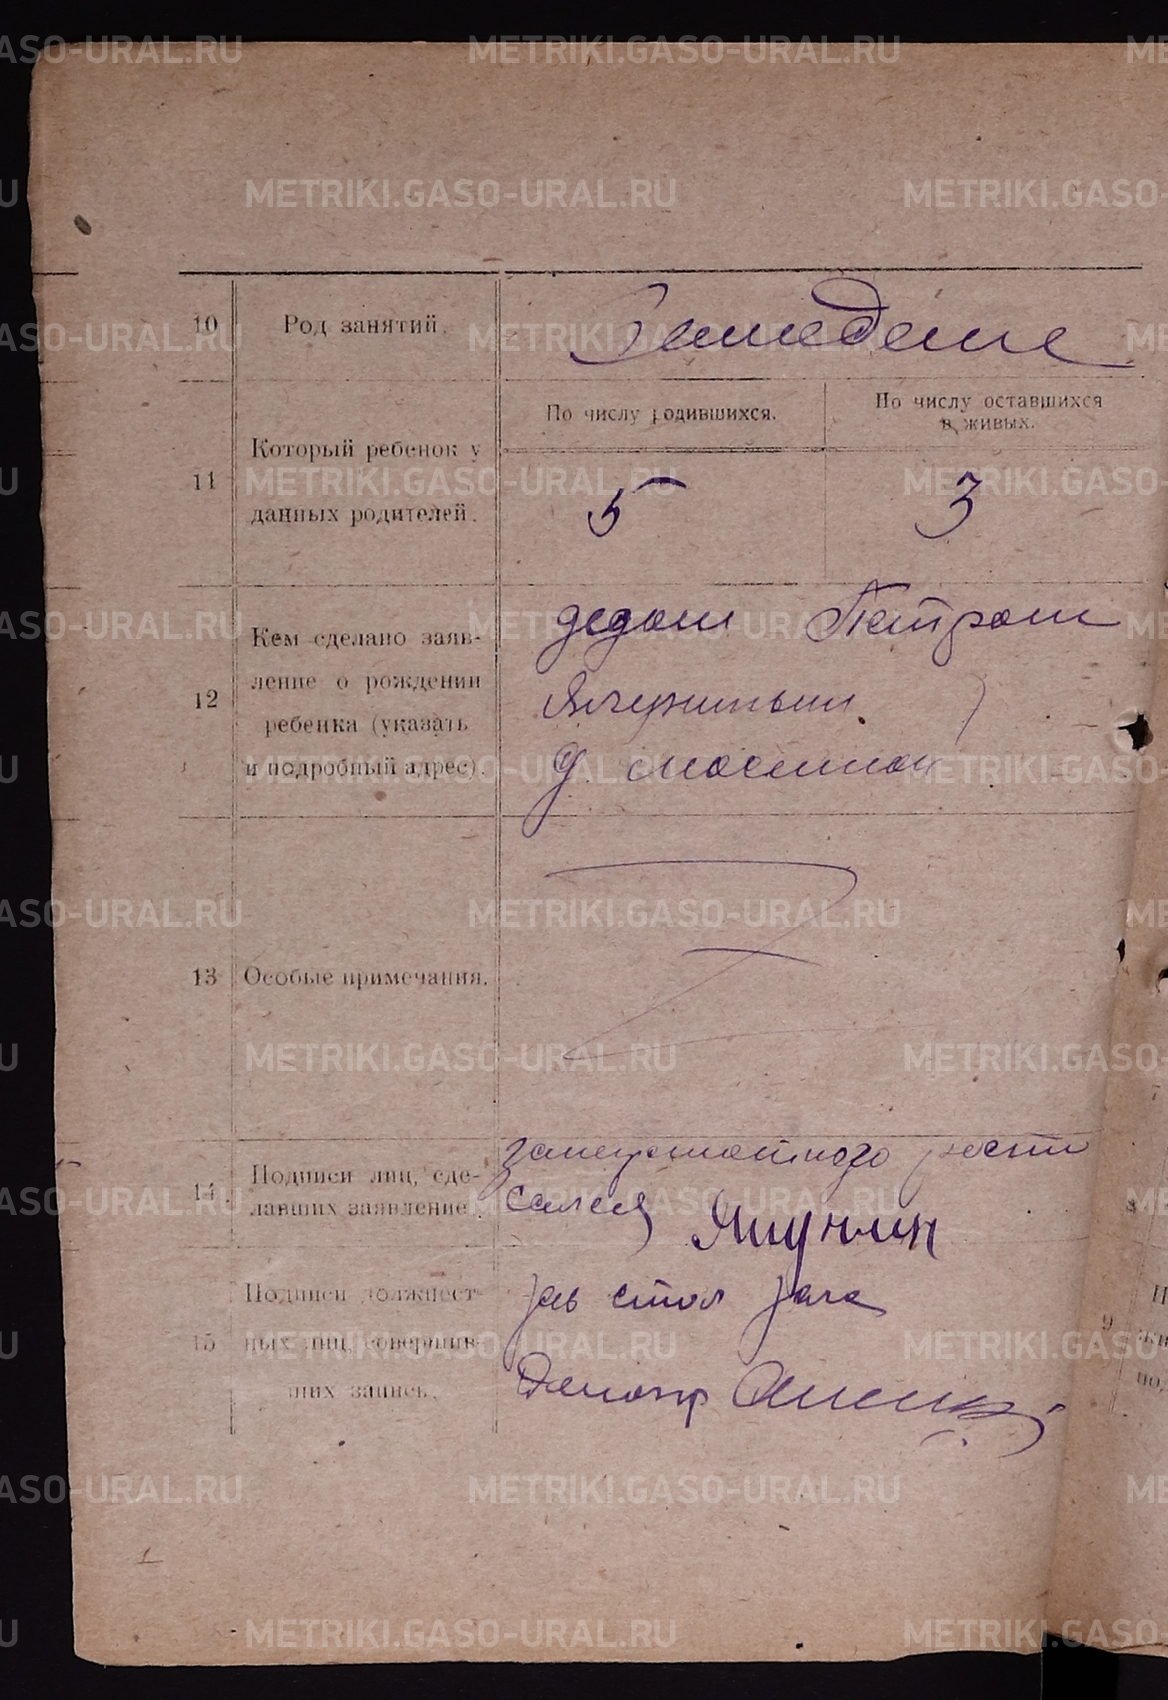 METRIKI.GASO-URAL.RU
10 Род занятий. Земледелие
11 Который ребенок у данных родителей.
По числу родившихся.
По числу оставшихся в живых.
5 3
12 Кем сделано заяв-
ление о рождении
ребенка (указать
и подробный адрес).
дедом Петром
Ялуниным
13 Особые примечания.
14. Подписи лиц, сде-
лавших заявление.
Ялунин
15 Подписи должност-
ных лиц, совершив-
ших запись.
зав стол загс